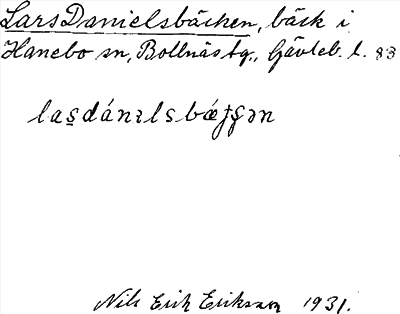 Lars Danielsbäcken, bäck i
Hanebo sn, Bollnäs tg., Gävleb. l. 83
laṣdánɩlsbǽjʃən
Nils Erik Eriksson 1931.